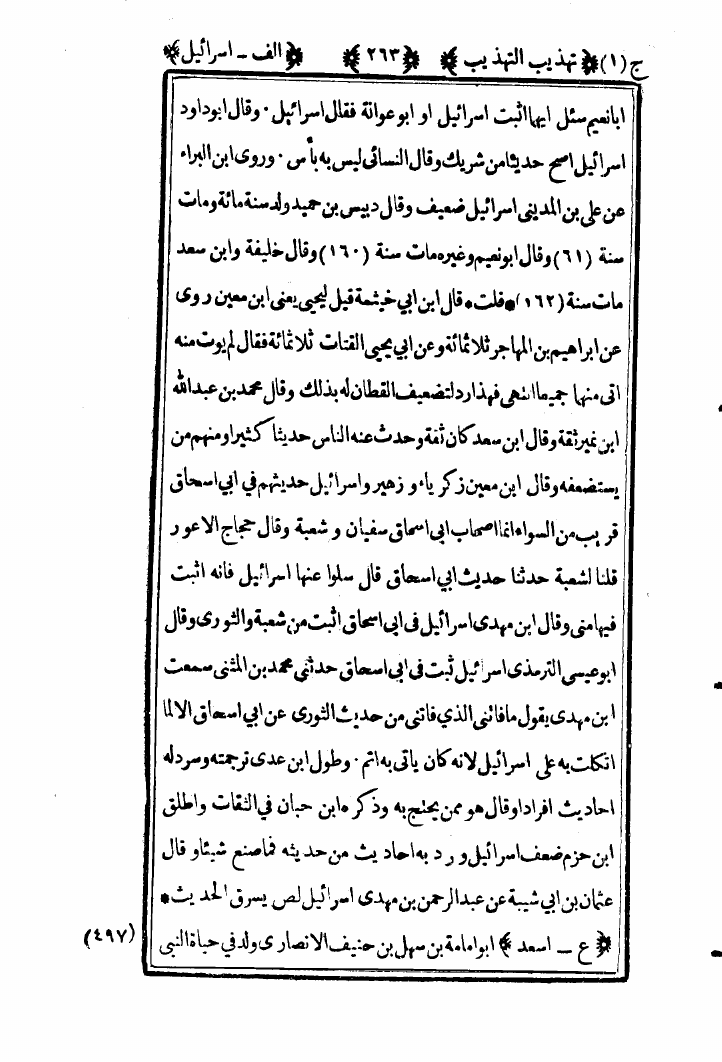 ج (١) ﴿ تهذيب التهذيب ﴾ ﴿ ٢٦٣ ﴾ ﴿ الف ـ اسرائيل ﴾
ابانعيم سئل ايهما اثبت اسرائيل او ابو عوانة فقال اسرائيل · وقال ابوداود
اسرائيل اصح حديثا من شريك وقال النسائى ليس به بأس · وروى ابن البراء
عن على بن المدينى اسرائيل ضعيف وقال دبيس بن حميد ولد سنة مائة ومات
سنة (٦١) وقال ابو نعيم وغيره مات سنة (١٦٠) وقال خليفة وابن سعد
مات سنة (١٦٢) * قلت * قال ابن ابي خيثمة قيل ليحيى يعنى ابن معين روى
عن ابراهيم بن المهاجر ثلاثمائة وعن ابي يحيى القتات ثلاثمائة فقال لم يوت منه
اتى منها جميعا انتهى فهذا رد لتضعيف القطان له بذلك وقال محمد بن عبدالله
ابن نمير ثقة وقال ابن سعد كان ثقة وحدث عنه الناس حديثا كثيرا ومنهم من
يستضعفه وقال ابن معين زكرياء و زهير واسرائيل حديثهم في ابي اسحاق
قريب من السواء انما اصحاب ابى اسحاق سفيان و شعبة وقال حجاج الاعور
قلنا لشعبة حدثنا حديث ابي اسحاق قال سلوا عنها اسرائيل فانه اثبت
فيها منى وقال ابن مهدى اسرائيل فى ابى اسحاق اثبت من شعبة والثورى وقال
ابو عيسى الترمذى اسرائيل ثبت فى ابى اسحاق حدثنى محمد بن المثنى سمعت
ابن مهدى يقول ما فاتنى الذي فاتنى من حديث الثورى عن ابي اسحاق الا لما
اتكلت به على اسرائيل لانه كان ياتى به اتم · وطول ابن عدى ترجمته وسرد له
احاديث افرادا وقال هو ممن يحتج به وذكره ابن حبان في الثقات واطلق
ابن حزم ضعف اسرائيل ورد به احاديث من حديثه فما صنع شيئا وقال
عثمان بن ابي شيبة عن عبدالرحمن بن مهدى اسرائيل لص يسرق الحديث *
﴿ ع ـ اسعد ﴾ ابو امامة بن سهل بن حنيف الانصارى ولد في حياة النبي
(٤٩٧)